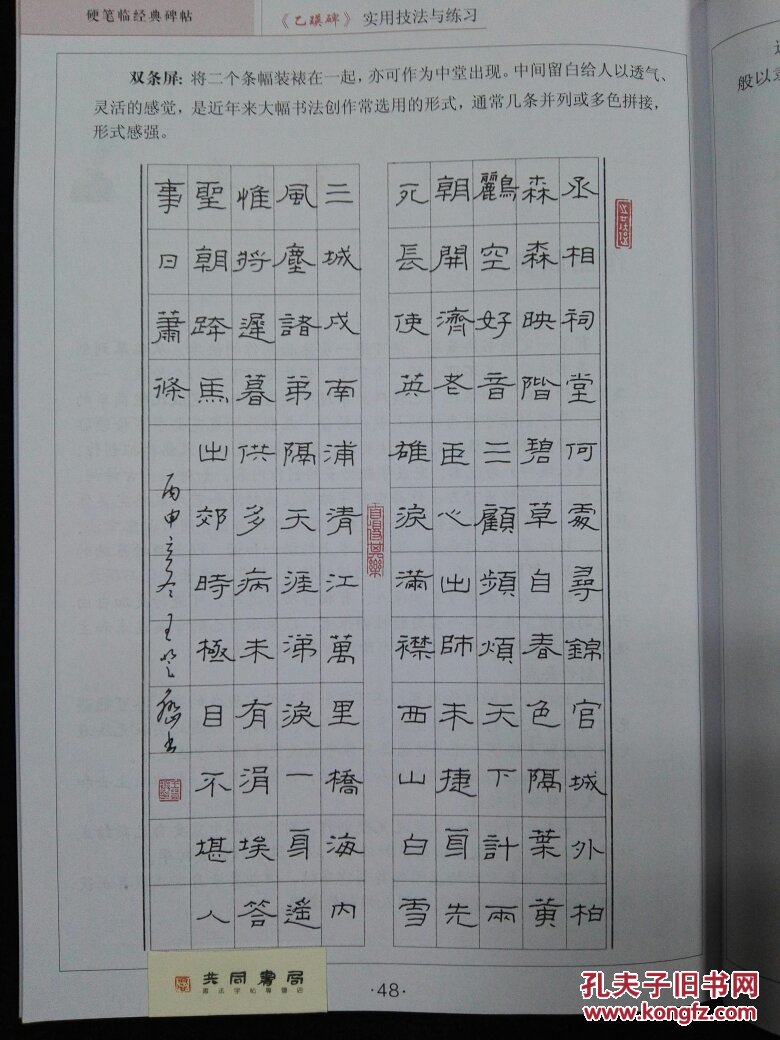 硬笔临经典碑帖
《乙瑛碑》实用技法与练习
双条屏：将二个条幅装裱在一起，亦可作为中堂出现。中间留白给人以透气、
灵活的感觉，是近年来大幅书法创作常选用的形式，通常几条并列或多色拼接，
形式感强。
丞相祠堂何處尋錦官城外柏
森森映階碧草自春色隔葉黄
鸝空好音三顧頻煩天下計兩
朝開濟老臣心出師未捷身先
死長使英雄淚滿襟西山白雪
三城戍南浦清江萬里橋海内
風塵諸弟隔天涯涕淚一身遥
惟將遲暮供多病未有涓埃答
聖朝跨馬出郊時極目不堪人
事日蕭條
丙申
共同書局
書法字帖專營店
·48·
般以
孔夫子旧书网
www.kongfz.com